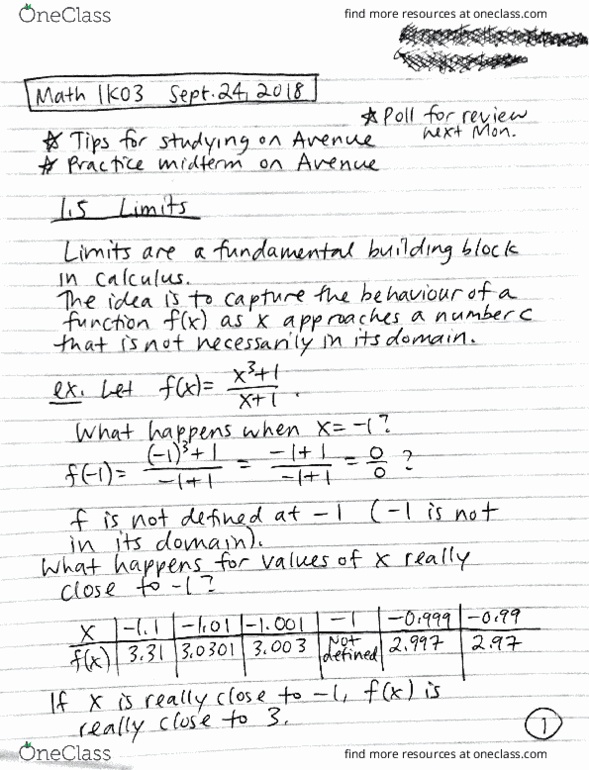 OneClass
find more resources at oneclass.com
Math 1K03 Sept. 24, 2018
* Poll for review
next Mon.
* Tips for studying on Avenue
* Practice midterm on Avenue
1.5 Limits
Limits are a fundamental building block
in calculus.
The idea is to capture the behaviour of a
function f(x) as x approaches a number c
that is not necessarily in its domain.
ex. Let f(x) = (x³+1)/(x+1).
What happens when x = -1?
f(-1) = ((-1)³+1)/(-1+1) = (-1+1)/(-1+1) = 0/0 ?
f is not defined at -1 (-1 is not
in its domain).
What happens for values of x really
close to -1?
x | -1.1 | -1.01 | -1.001 | -1 | -0.999 | -0.99
f(x) | 3.31 | 3.0301 | 3.003 | Not defined | 2.997 | 2.97
If x is really close to -1, f(x) is
really close to 3.
1
OneClass
find more resources at oneclass.com